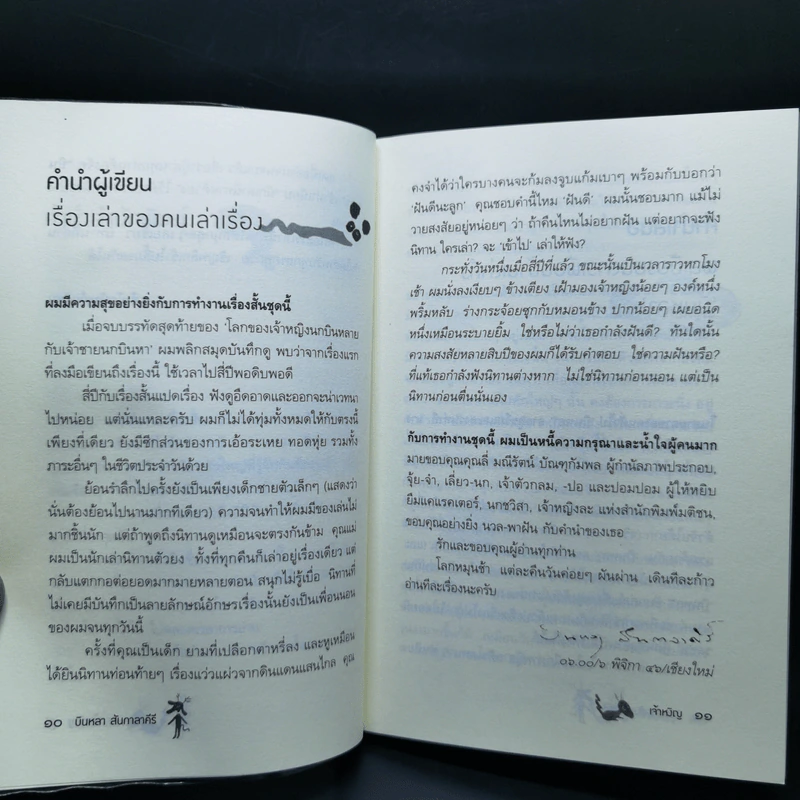 คำนำผู้เขียน
เรื่องเล่าของคนเล่าเรื่อง
ผมมีความสุขอย่างยิ่งกับการทำงานเรื่องสั้นชุดนี้
เมื่อจบบรรทัดสุดท้ายของ ‘โลกของเจ้าหญิงนกบินหลาย
กับเจ้าชายนกบินหา’ ผมพลิกสมุดบันทึกดู พบว่าจากเรื่องแรก
ที่ลงมือเขียนถึงเรื่องนี้ ใช้เวลาไปสี่ปีพอดิบพอดี
สี่ปีกับเรื่องสั้นแปดเรื่อง ฟังดูอืดอาดและออกจะน่าเวทนา
ไปหน่อย แต่นั่นแหละครับ ผมก็ไม่ได้ทุ่มทั้งหมดให้กับตรงนี้
เพียงที่เดียว ยังมีซีกส่วนของการเอ้อระเหย ทอดหุ่ย รวมทั้ง
ภาระอื่นๆ ในชีวิตประจำวันด้วย
ย้อนรำลึกไปครั้งยังเป็นเพียงเด็กชายตัวเล็กๆ (แสดงว่า
นั่นต้องย้อนไปนานมากทีเดียว) ความจนทำให้ผมมีของเล่นไม่
มากชิ้นนัก แต่ถ้าพูดถึงนิทานดูเหมือนจะตรงกันข้าม คุณแม่
ผมเป็นนักเล่านิทานตัวยง ทั้งที่ทุกคืนก็เล่าอยู่เรื่องเดียว แต่
กลับแตกกอต่อยอดมากมายหลายตอน สนุกไม่รู้เบื่อ นิทานที่
ไม่เคยมีบันทึกเป็นลายลักษณ์อักษรเรื่องนั้นยังเป็นเพื่อนนอน
ของผมจนทุกวันนี้
ครั้งที่คุณเป็นเด็ก ยามที่เปลือกตาหรี่ลง และหูเหมือน
ได้ยินนิทานท่อนท้ายๆ เรื่องแว่วแผ่วจากดินแดนแสนไกล คุณ
๑๐ บินหลา สันกาลาคีรี
คงจำได้ว่าใครบางคนจะก้มลงจูบแก้มเบาๆ พร้อมกับบอกว่า
‘ฝันดีนะลูก’ คุณชอบคำนี้ไหม ‘ฝันดี’ ผมนั้นชอบมาก แม้ไม่
วายสงสัยอยู่หน่อยๆ ว่า ถ้าคืนไหนไม่อยากฝัน แต่อยากจะฟัง
นิทาน ใครเล่า? จะ ‘เข้าไป’ เล่าให้ฟัง?
กระทั่งวันหนึ่งเมื่อสี่ปีที่แล้ว ขณะนั้นเป็นเวลาราวหกโมง
เช้า ผมนั่งลงเงียบๆ ข้างเตียง เฝ้ามองเจ้าหญิงน้อยๆ องค์หนึ่ง
พริ้มหลับ ร่างกระจ้อยซุกกับหมอนข้าง ปากน้อยๆ เผยอนิด
หนึ่งเหมือนระบายยิ้ม ใช่หรือไม่ว่าเธอกำลังฝันดี? ทันใดนั้น
ความสงสัยหลายสิบปีของผมก็ได้รับคำตอบ ใช่ความฝันหรือ?
ที่แท้เธอกำลังฟังนิทานต่างหาก ไม่ใช่นิทานก่อนนอน แต่เป็น
นิทานก่อนตื่นนั่นเอง
กับการทำงานชุดนี้ ผมเป็นหนี้ความกรุณาและน้ำใจผู้คนมาก
มายขอบคุณคุณลี่ มณีรัตน์ บัณฑุกัมพล ผู้กำนัลภาพประกอบ,
จุ้ย-จ๋า, เลี่ยว-นก, เจ้าตัวกลม, -ปอ และปอมปอม ผู้ให้หยิบ
ยืมแคแรคเตอร์, นกชวิสา, เจ้าหญิงละ แห่งสำนักพิมพ์มติชน.
ขอบคุณอย่างยิ่ง นวล-พาฝัน กับคำนำของเธอ
รักและขอบคุณผู้อ่านทุกท่าน
โลกหมุนช้า แต่ละคืนวันค่อยๆ ผันผ่าน เดินทีละก้าว
อ่านทีละเรื่องนะครับ
บินหลา สันกาลาคีรี
๐๖.๐๐/๖ พิจิกา ๔๖/เชียงใหม่
เจ้าหงิญ ๑๑